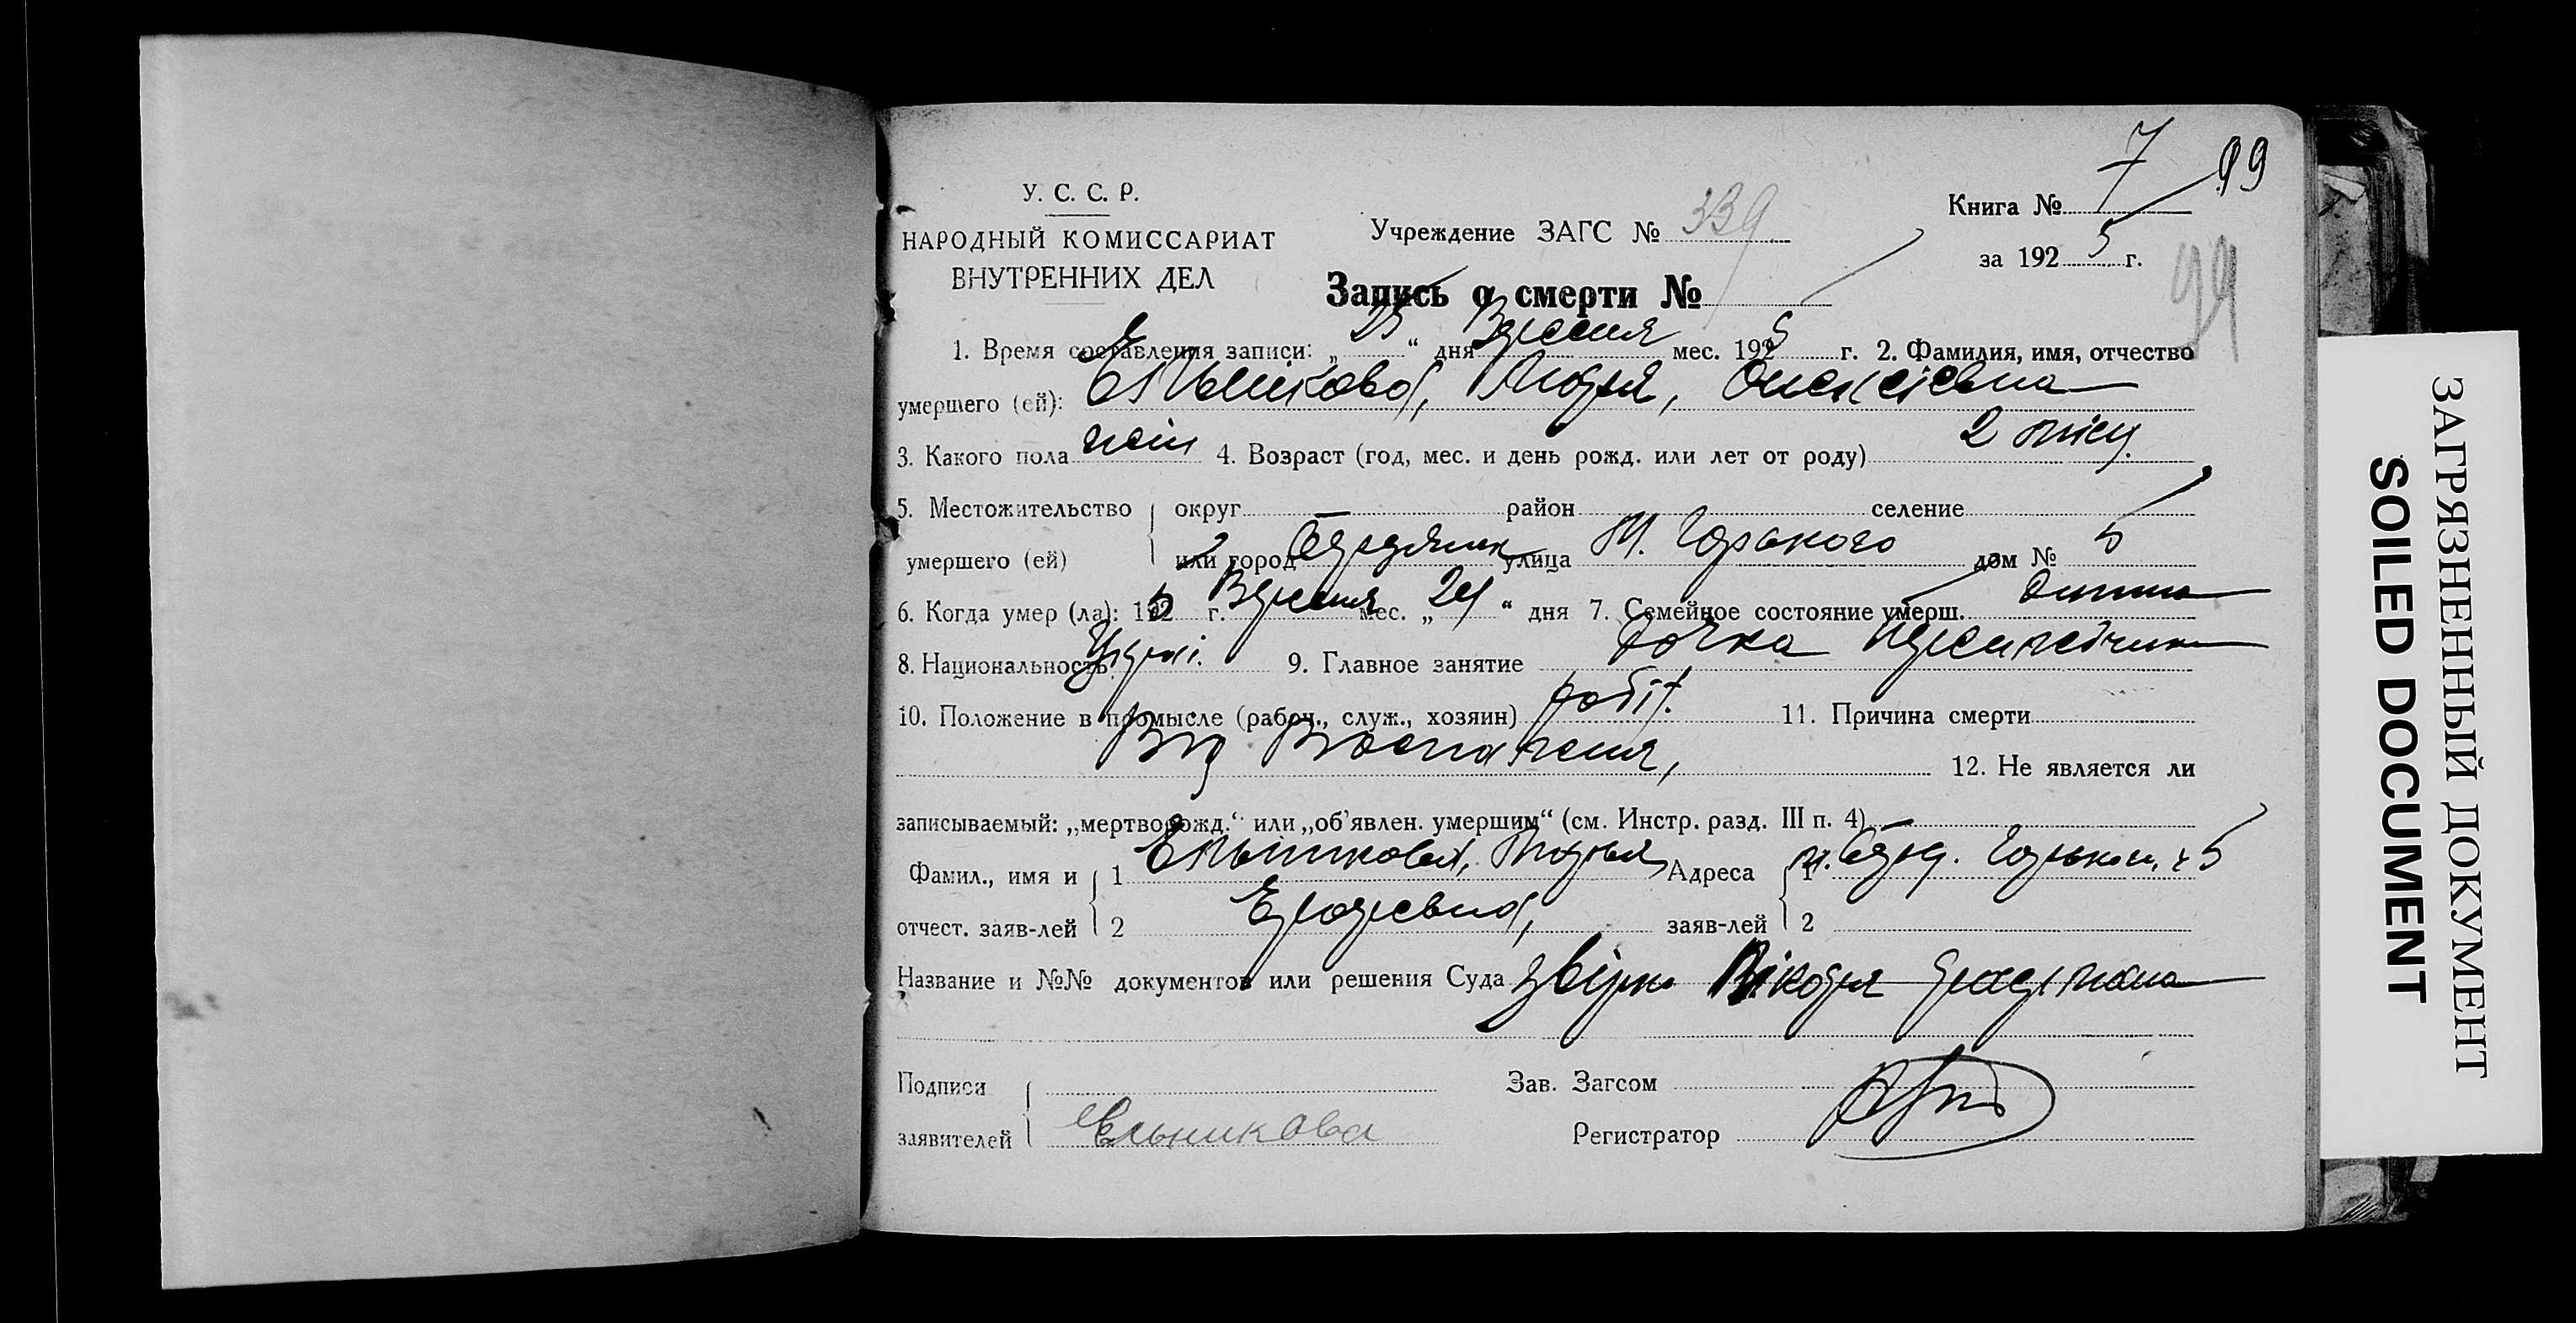 7
99
У. С. С. Р.
НАРОДНЫЙ КОМИССАРИАТ
ВНУТРЕННИХ ДЕЛ
Учреждение ЗАГС № 339
Книга №
за 1925 г.
99
Запись о смерти №
1. Время составления записи: „25“ дня Вересня мес. 1925 г. 2. Фамилия, имя, отчество
умершего (ей): Ельнікова, Лидия, Олексієвна
3. Какого пола жін 4. Возраст (год, мес. и день рожд. или лет от роду) 2 міс.
5. Местожительство округ район селение
умершего (ей) или город улица М. Горького дом № 5
6. Когда умер (ла): 192 5 г. Вересня мес. „24“ дня 7. Семейное состояние умерш. дитина
8. Национальность 9. Главное занятие дочка
10. Положение в промысле (рабоч., служ., хозяин) робіт. 11. Причина смерти
Від Воспаления, 12. Не является ли
записываемый: „мертворожд.“ или „об'явлен. умершим“ (см. Инстр. разд. III п. 4)
Фамил., имя и 1 Ельникова, Адреса 1 м. Горького, ч 5
отчест. заяв-лей 2 заяв-лей 2
Название и №№ документов или решения Суда
Подписи Зав. Загсом
заявителей Ельникова Регистратор
ЗАГРЯЗНЕННЫЙ ДОКУМЕНТ
SOILED DOCUMENT